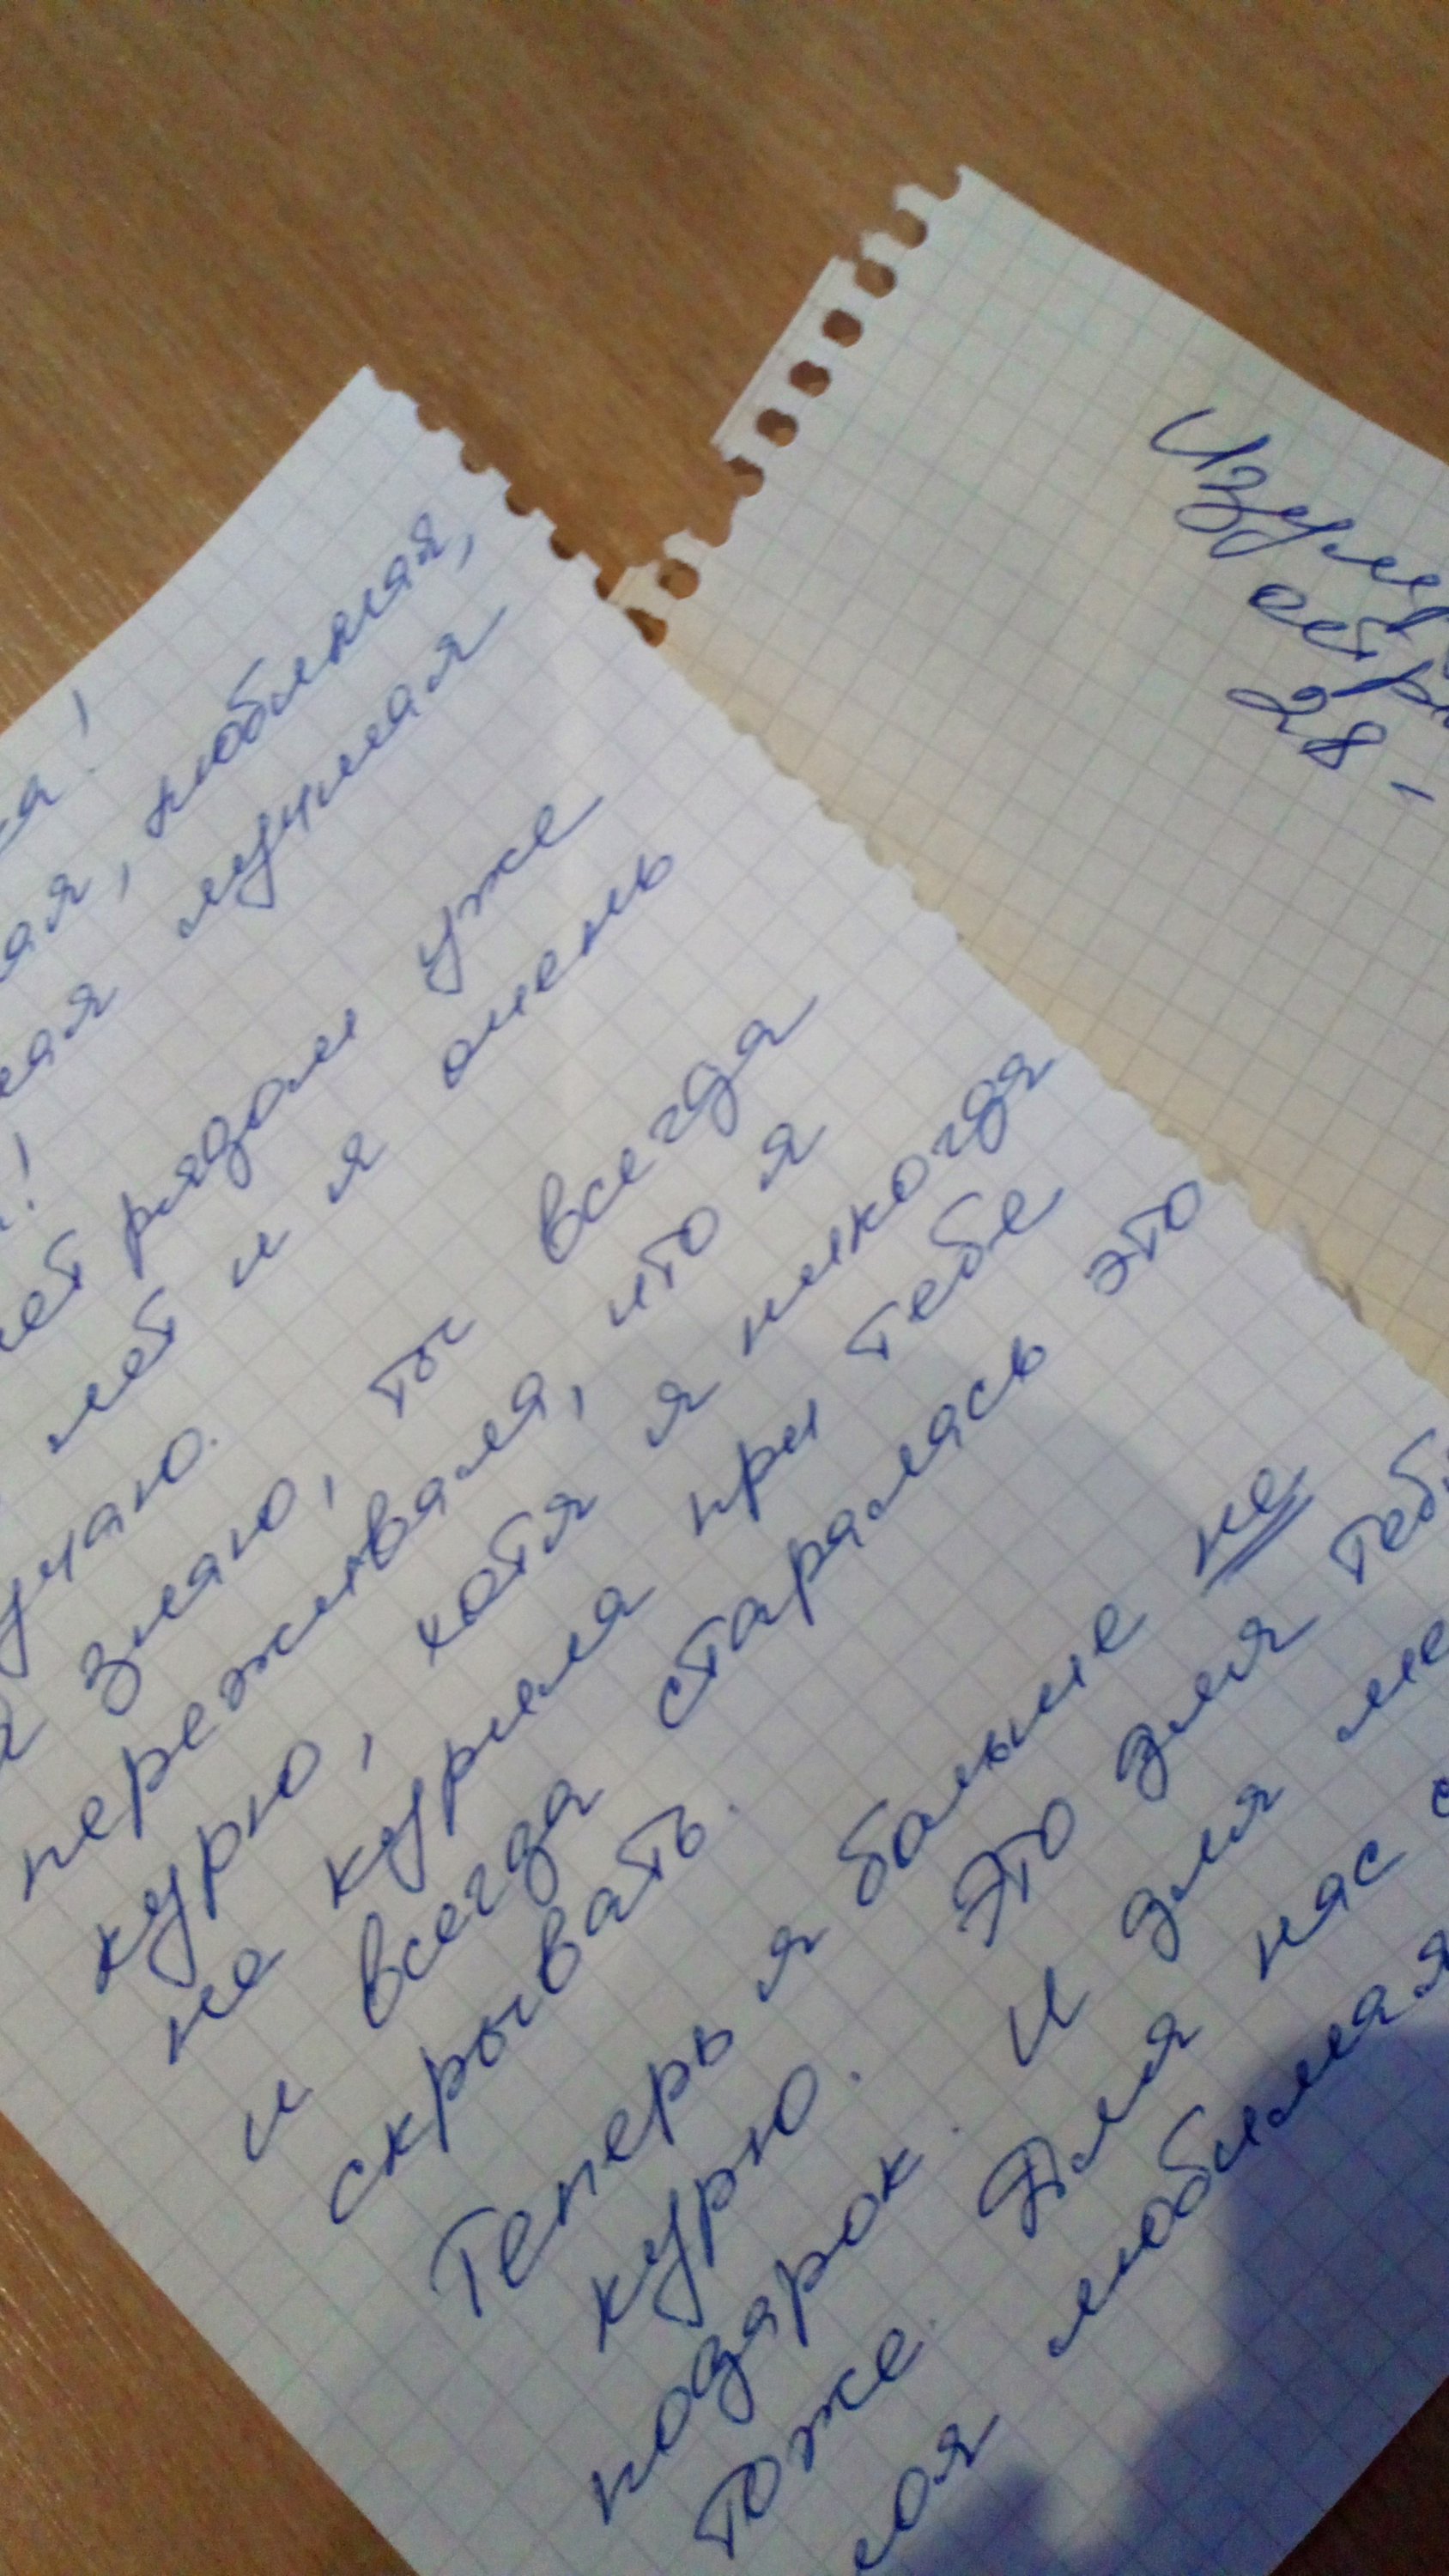 любимая,
лучшая
рядом уже
лет и я очень
знаю, ты всегда
переживала, что я
курю, хотя я никогда
не курила при тебе
и всегда старалась это
скрывать.
Теперь я больше не
курю. Это для
подарок. И для
тоже. Для нас
любимая
28 -